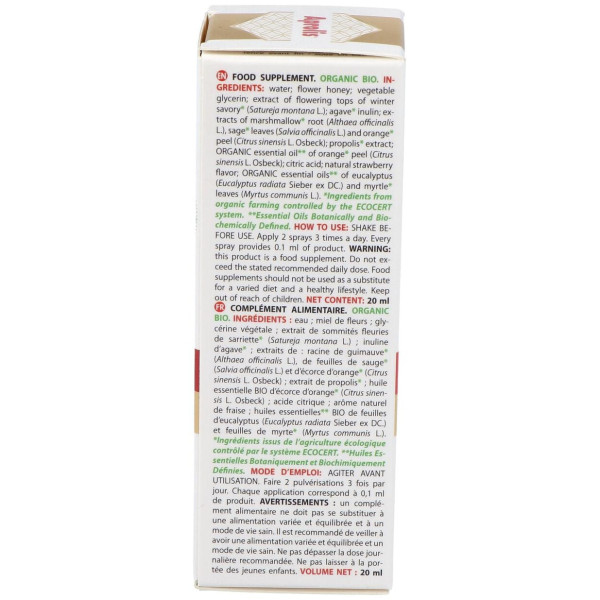 Aprolis
EN FOOD SUPPLEMENT. ORGANIC BIO. IN-
GREDIENTS: water; flower honey; vegetable
glycerin; extract of flowering tops of winter
savory* (Satureja montana L.); agave* inulin; ex-
tracts of marshmallow* root (Althaea officinalis
L.), sage* leaves (Salvia officinalis L.) and orange*
peel (Citrus sinensis L. Osbeck); propolis* extract;
ORGANIC essential oil** of orange* peel (Citrus
sinensis L. Osbeck); citric acid; natural strawberry
flavor; ORGANIC essential oils** of eucalyptus
(Eucalyptus radiata Sieber ex DC.) and myrtle*
leaves (Myrtus communis L.). *Ingredients from
organic farming controlled by the ECOCERT
system. **Essential Oils Botanically and Bio-
chemically Defined. HOW TO USE: SHAKE BE-
FORE USE. Apply 2 sprays 3 times a day. Every
spray provides 0.1 ml of product. WARNING:
this product is a food supplement. Do not ex-
ceed the stated recommended daily dose. Food
supplements should not be used as a substitute
for a varied diet and a healthy lifestyle. Keep
out of reach of children. NET CONTENT: 20 ml
FR COMPLÉMENT ALIMENTAIRE. ORGANIC
BIO. INGRÉDIENTS : eau ; miel de fleurs ; gly-
cérine végétale ; extrait de sommités fleuries
de sarriette* (Satureja montana L.) ; inuline
d'agave* ; extraits de : racine de guimauve*
(Althaea officinalis L.), de feuilles de sauge*
(Salvia officinalis L.) et d'écorce d'orange* (Citrus
sinensis L. Osbeck) ; extrait de propolis* ; huile
essentielle BIO d'écorce d'orange* (Citrus sinen-
sis L. Osbeck) ; acide citrique ; arôme naturel
de fraise ; huiles essentielles** BIO de feuilles
d'eucalyptus (Eucalyptus radiata Sieber ex DC.)
et feuilles de myrte* (Myrtus communis L.).
*Ingrédients issus de l'agriculture écologique
contrôlé par le système ECOCERT. **Huiles Es-
sentielles Botaniquement et Biochimiquement
Définies. MODE D'EMPLOI: AGITER AVANT
UTILISATION. Faire 2 pulvérisations 3 fois par
jour. Chaque application correspond à 0,1 ml
de produit. AVERTISSEMENTS : un complé-
ment alimentaire ne doit pas se substituer à
une alimentation variée et équilibrée et à un
mode de vie sain. Il est recommandé de veiller à
avoir une alimentation variée et équilibrée et un
mode de vie sain. Ne pas dépasser la dose jour-
nalière recommandée. Ne pas laisser à la por-
tée des jeunes enfants. VOLUME NET : 20 ml